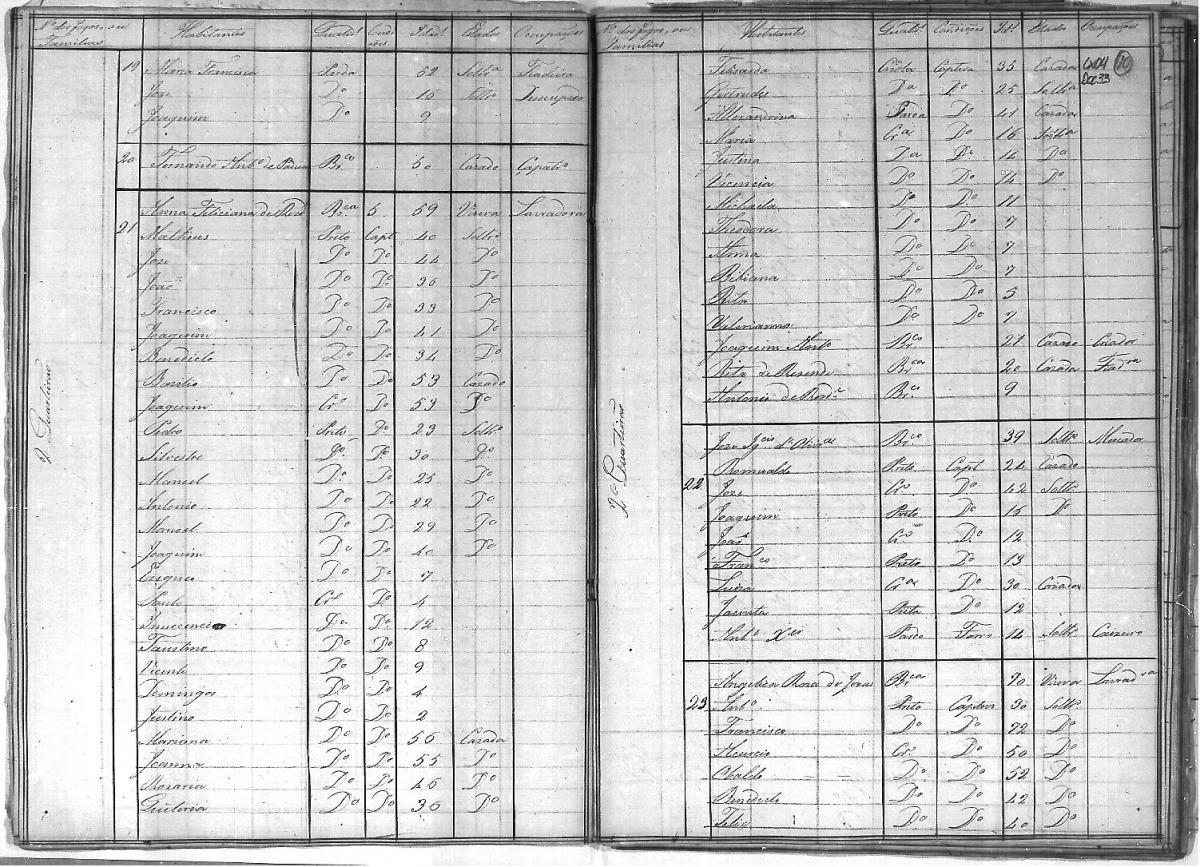 Nº dos fogos, ou Familias Habitantes Qualid.s Condições Idad.s Estados Occupações
19 Maria Francisca Parda 52 Soltr.a Fiadeira
Joze Dº 16 Soltrº Desocupado
Joaquim Dº 9
20 Fernando Antº de Br.co 50 Cazado
Anna Feliciana de Br.ca 5 59 Viuva Lavradora
21 Matheus Preto Capt 40 Soltrº
Joze Dº Dº 44 Dº
João Dº Dº 36 Dº
Francisco Dº Dº 33 Dº
Joaquim Dº Dº 41 Dº
Benedicto Dº Dº 34 Dº
Bazilio Dº Dº 53 Cazado
Joaquim Crº Dº 53 Dº
Pedro Preto Dº 23 Soltrº
Silvestre Dº Dº 30 Dº
Manoel Dº Dº 25 Dº
Antonio Dº Dº 22 Dº
Manoel Dº Dº 29 Dº
Joaquim Dº Dº 40 Dº
Dº Dº 7
Paulo Crº Dº 4
Innocencio Dº Dº 12
Faustino Dº Dº 8
Vicente Dº Dº 9
Domingos Dº Dº 4
Justino Dº Dº 2
Mariana Dº Dº 56 Cazada
Joanna Dº Dº 55 Dº
Rozaria Dº Dº 46 Dº
Quiteria Dº Dº 36 Dº
2º Quarteirão
Nº dos fogos, ou Familias Habitantes Qualid.s Condições Id.s Estados Occupações
Felisarda Criola Captiva 35 Cazada
Cx04 Doc33 10
Gertrudes Dª Dº 25 Soltª
Allexandrina Parda Dº 41 Cazada
Maria Crª Dº 16 Soltª
Justina Dª Dº 14 Dº
Vicencia Dº Dº 14 Dº
Michaela Dº Dº 11
Theodora Dº Dº 7
Anna Dº Dº 7
Bibiana Dº Dº 7
Rita Dº Dº 5
Valeriana Dª Dº 7
Joaquim Antº Br.co 21 Cazado Criador
Rita de Rezende Br.ca 20 Cazada Fiad.ra
Antonio de Rezd.e Br.co 9
Joze Br.co 39 Soltrº
Romualdo Preto Capt 24 Cazado
22 Joze Crº Dº 42 Soltrº
Joaquim Preto Dº 16 Dº
João Crº Dº 12
Fran.co Preto Dº 13
Luiza Crª Dº 30 Cazada
Jacinta Preta Dº 12
Antº X.er Pardo Forro 14 Soltrº Caixeiro
Angelica Roza de Jezus Br.ca 70 Viuva Lavrad.ra
23 Antº Preto Captivo 30 Soltrº
Francisco Dº Dº 72 Dº
Crº Dº 50 Dº
Obaldo Dº Dº 52 Dº
Benedicto Dº Dº 42 Dº
Felix Dº Dº 40 Dº
2º Quarteirão